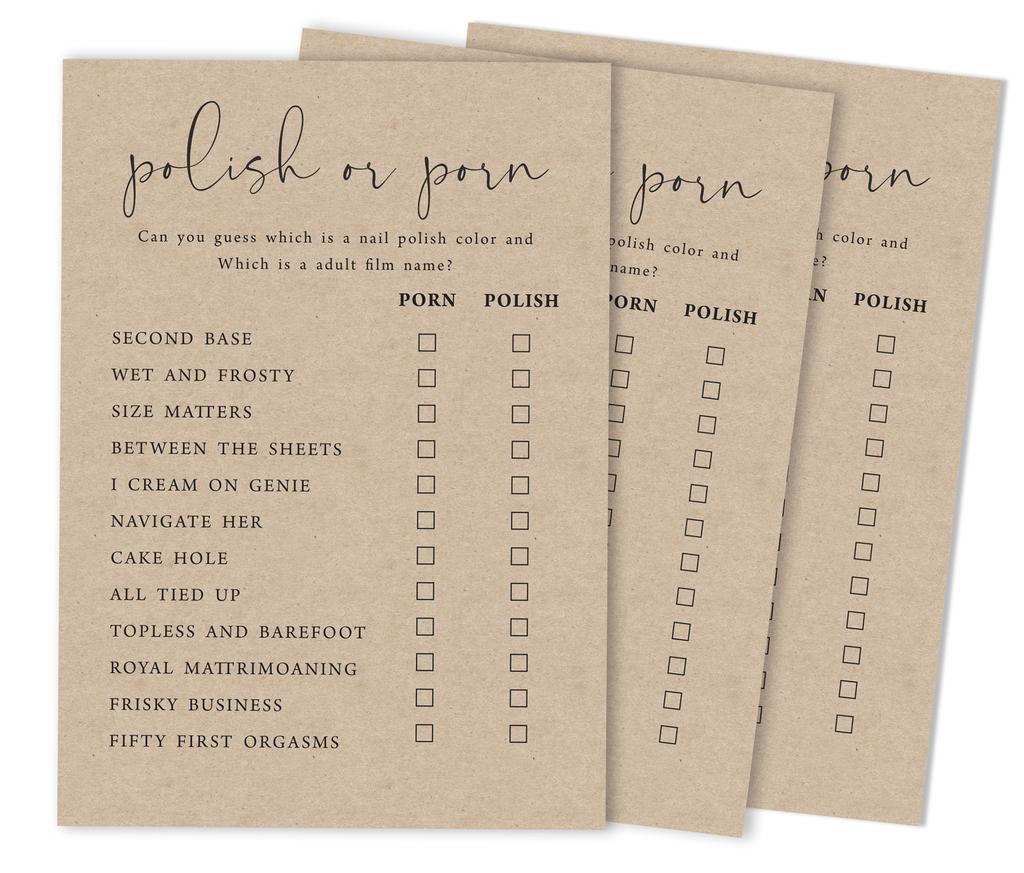 polish or porn
Can you guess which is a nail polish color and
Which is a adult film name?
PORN POLISH
SECOND BASE
WET AND FROSTY
SIZE MATTERS
BETWEEN THE SHEETS
I CREAM ON GENIE
NAVIGATE HER
CAKE HOLE
ALL TIED UP
TOPLESS AND BAREFOOT
ROYAL MATTRIMOANING
FRISKY BUSINESS
FIFTY FIRST ORGASMS
porn
polish color and
name?
PORN POLISH
porn
color and
POLISH